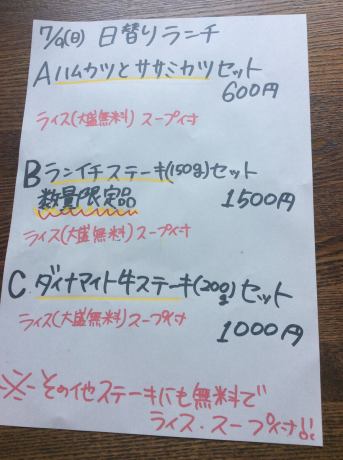 7/9(日) 日替りランチ
Aハムカツとササミカツセット
600円
ライス(大盛無料) スープ付
Bランイチステーキ(150g)セット
数量限定品 1500円
ライス(大盛無料) スープ付
C.ダイナマイト牛ステーキ(200g)セット
ライス(大盛無料) スープ付 1000円
※その他ステーキにも無料で
ライス・スープ付!!